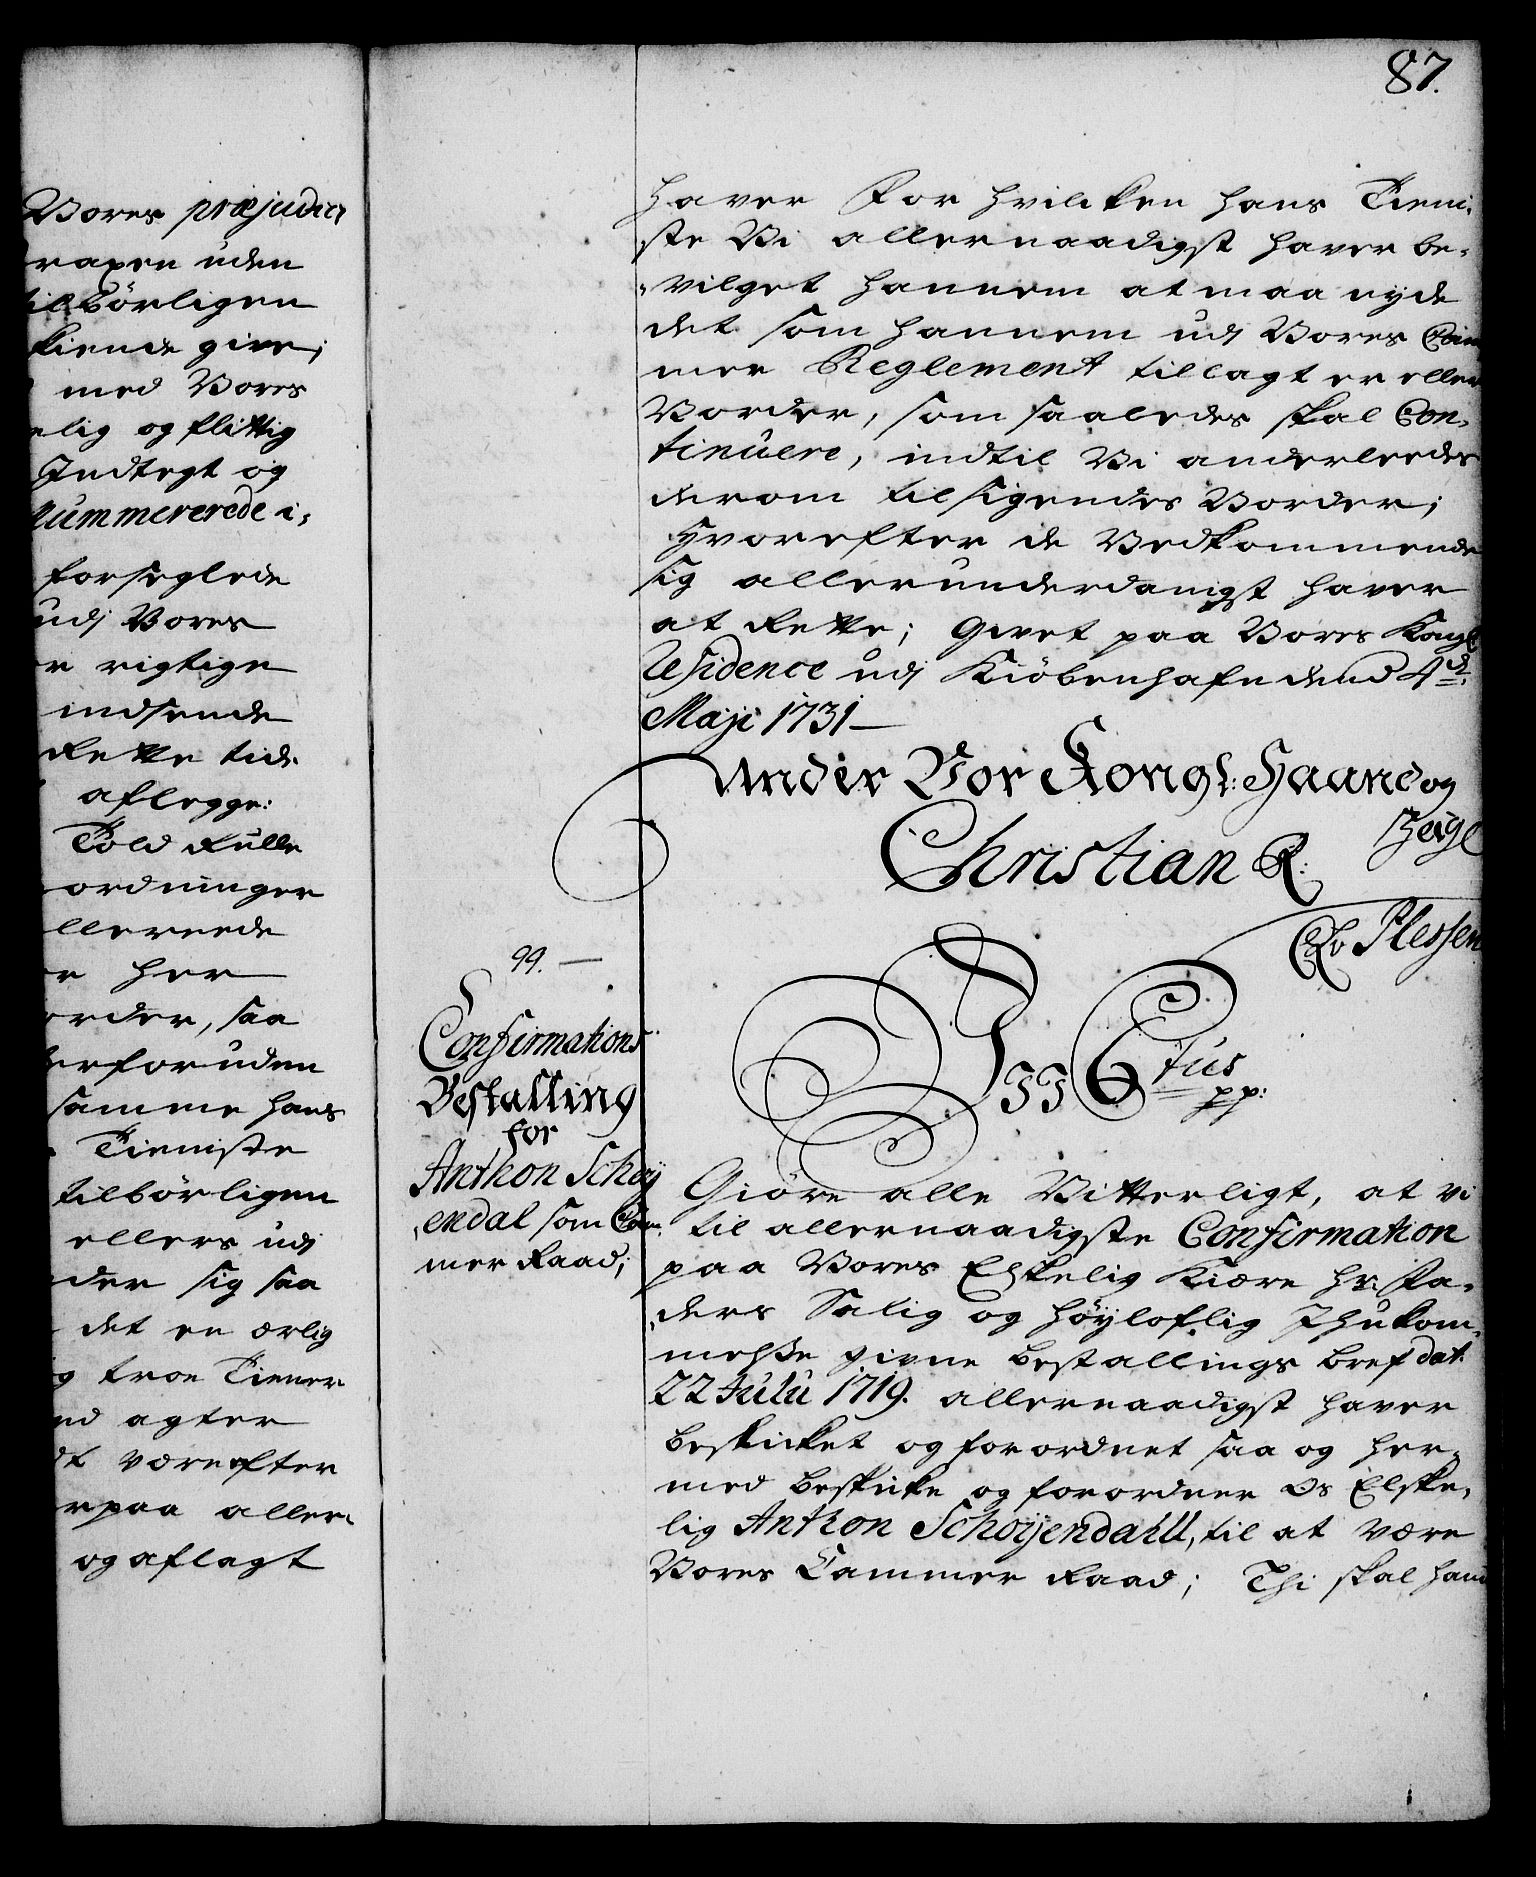 87.
Vores præjudice
raxen uden
tilbörligen
kiende give;
med Vores
elig og flittig
Indtegt og
Nummererede i,
forseglede
udj Vores
er rigtige
indsende
Rette tide
aflegge:
Told Rulle
ordninger
llereede
er her
order, saa
derforuden
samme hans
Tieniste
tilbörligen
ellers udj
der sig saa
det en ærlig
og troe Tiener
ed agter
dt være efter
rpaa aller,
og aflagt
haver For hvilcken hans Tieni,
ste Vi allernaadigst haver be,
,vilget hannem at maa nyde
det som hannem udj Vores Cam
mer Reglement tillagt er eller
Vorder, som saaledes skal Con,
tinuere, indtil Vi anderleedes
derom tilsigendes Vorder;
Hvorefter de Vedkommende
sig allerunderdanigst haver
at Rette; Givet paa Vores Kongl
Residence udj Kiöbenhafn dend 4de
Maji 1731
Under Vor Kongl: Haand og
Zeigl
Christian R:
CAv Plessen
99.
Confirmations
Bestalling
for
Anthon Schöy
,endal som Cam,
mer Raad;
Dend 6tus
pp:
Giöre alle Vitterligt, at vi
til allernaadigste Confirmation
paa Vores Elskelig Kiære Hr: Fa,
,ders Salig og höyloflig Ihukom,
melße givne bestallings bref dat:
22 Julii 1719. allernaadigst haver
beskicket og forordnet saa og her,
med beskicke og forordner os Elske,
lig Anthon Schöyendahll, til at være
Vores Cammer Raad; Thi skal hand